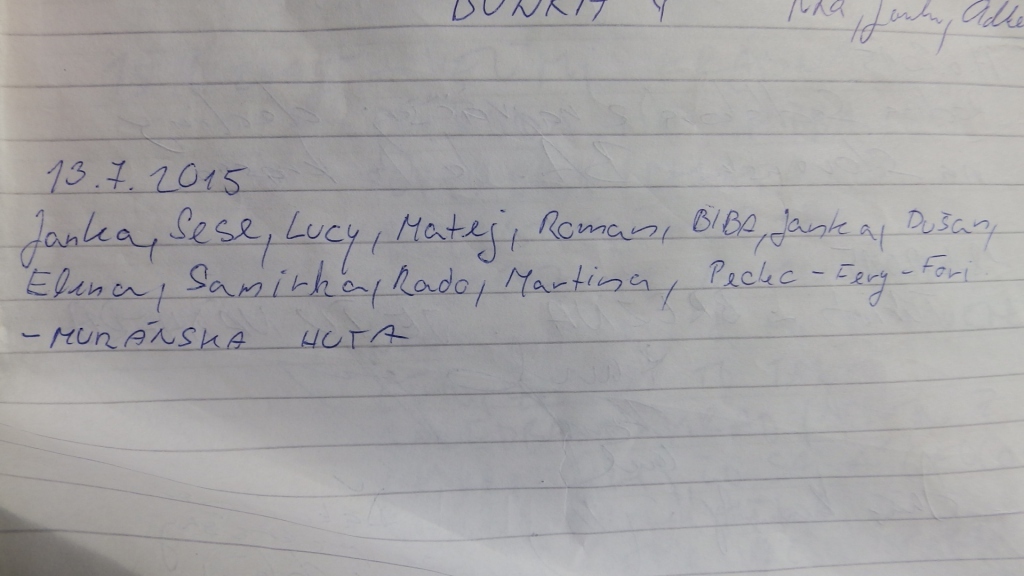 13.7.2015
Janka, Sese, Lucy, Matej, Roman, BIBA, Janka, Dušan,
Elena, Samirka, Rado, Martina, - Fery - Fori
- MURÁNSKA HUTA